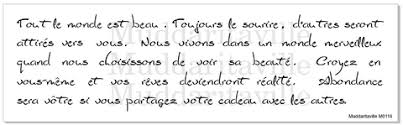 Tout le monde est beau. Toujours le sourire, d'autres seront
attirés vers vous. Nous vivons dans un monde merveilleux
quand nous choisissons de voir sa beauté. Croyez en
vous-même et vos rêves deviendront réalité. Abondance
sera vôtre si vous partagez votre cadeau avec les autres.
Muddaritaville
Muddaritaville
Muddaritaville M0116